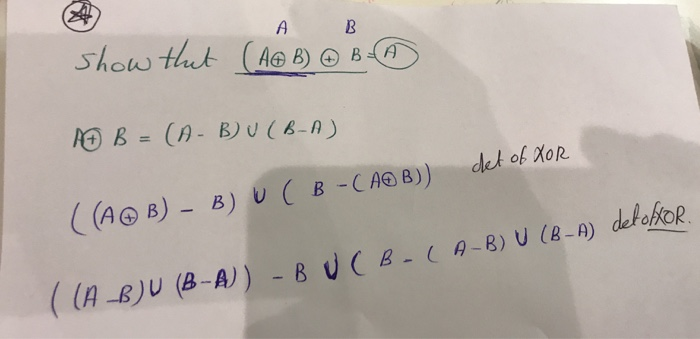 A B
Show that (A⊕B) ⊕ B = A
A⊕ B = (A - B) ∪ (B-A)
((A⊕B) - B) ∪ (B -(A⊕B)) det of XOR
((A-B)∪ (B-A)) - B ∪ (B - ( A-B) ∪ (B-A) det of XOR.